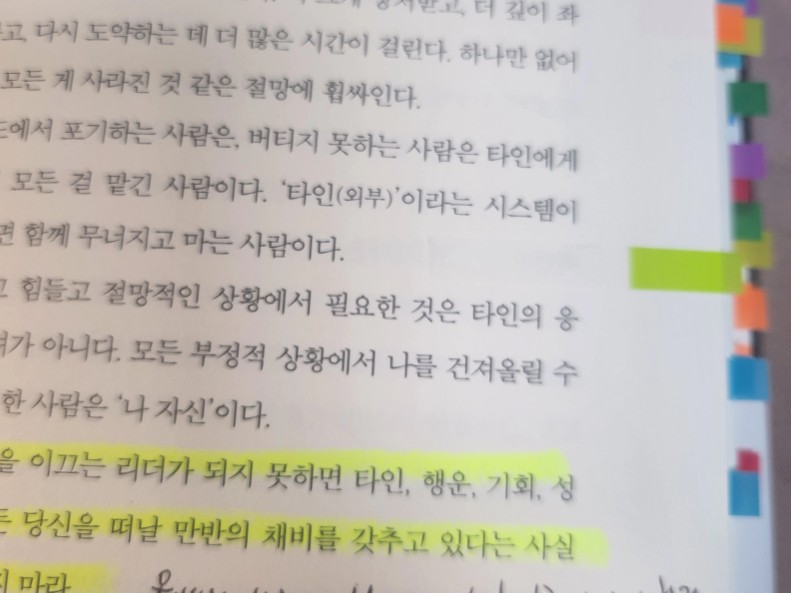 더 깊이 좌
다시 도약하는 데 더 많은 시간이 걸린다. 하나만 없어
모든 게 사라진 것 같은 절망에 휩싸인다.
포기하는 사람은, 버티지 못하는 사람은 타인에게
모든 걸 맡긴 사람이다. ‘타인(외부)’이라는 시스템이
함께 무너지고 마는 사람이다.
힘들고 절망적인 상황에서 필요한 것은 타인의 응
아니다. 모든 부정적 상황에서 나를 건져올릴 수
한 사람은 ‘나 자신’이다.
을 이끄는 리더가 되지 못하면 타인, 행운, 기회, 성
당신을 떠날 만반의 채비를 갖추고 있다는 사실
마라